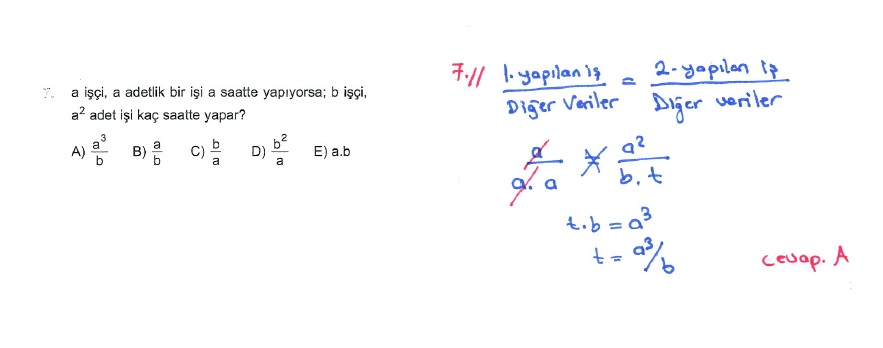 7. a işçi, a adetlik bir işi a saatte yapıyorsa; b işçi,
a² adet işi kaç saatte yapar?
A) a³/b B) a/b C) b/a D) b²/a E) a.b
7.// 1. yapılan iş / Diğer Veriler = 2. yapılan iş / Diğer veriler
a / a.a = a² / b.t
t.b = a³
t = a³/b
cevap. A